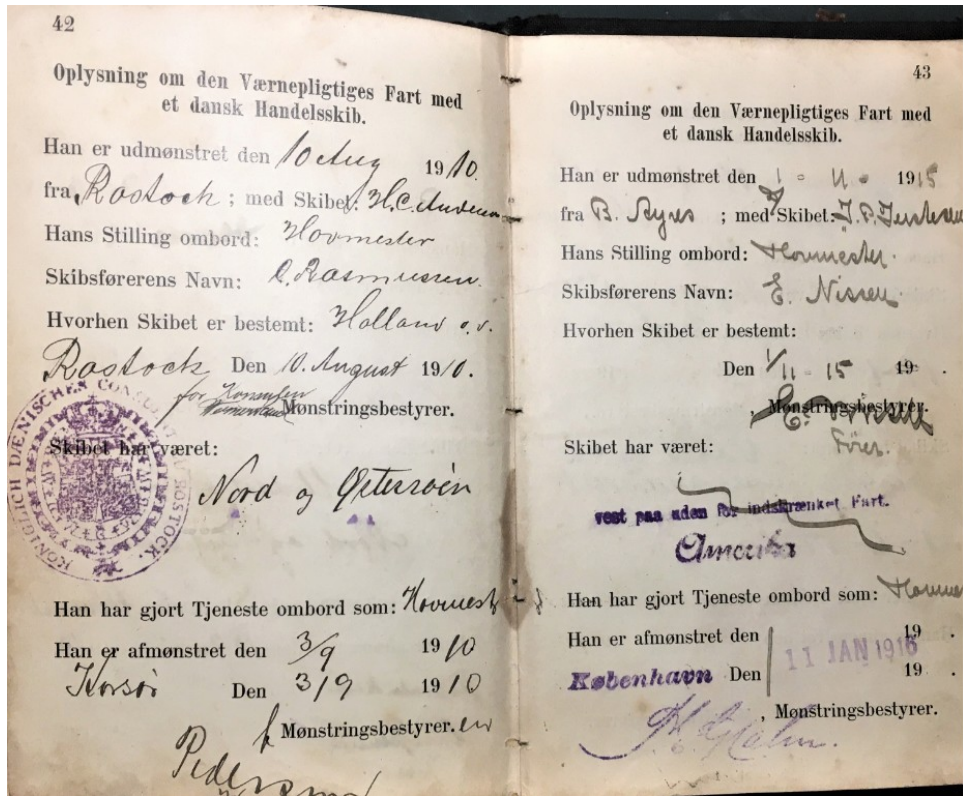 42
Oplysning om den Værnepligtiges Fart med
et dansk Handelsskib.
Han er udmønstret den 10 Aug 1910.
fra Rostock ; med Skibet: H.C.
Hans Stilling ombord: Hovmester
Skibsførerens Navn: C. Rasmussen.
Hvorhen Skibet er bestemt: Holland o.v.
Rostock Den 10. August 1910.
for Konsulen
Mønstringsbestyrer.
KÖNIGLICH DAENISCHEN ROSTOCK.
Skibet har været:
Nord og Østersøen
Han har gjort Tjeneste ombord som: Hovmest
Han er afmønstret den 3/9 1910
Korsør Den 3/9 1910
Mønstringsbestyrer.
43
Oplysning om den Værnepligtiges Fart med
et dansk Handelsskib.
Han er udmønstret den 1 - 11 - 1915
fra B. Ayres ; med Skibet: J.P.
Hans Stilling ombord: Hovmester.
Skibsførerens Navn: E. Nissen
Hvorhen Skibet er bestemt:
Den 1/11 - 15 19 .
, Mønstringsbestyrer.
E. Nissen
Fører.
Skibet har været:
vest paa uden for indskrænket Fart.
Amerika
Han har gjort Tjeneste ombord som: Hovme
Han er afmønstret den 19 .
11 JAN 1916
København Den 19 .
, Mønstringsbestyrer.